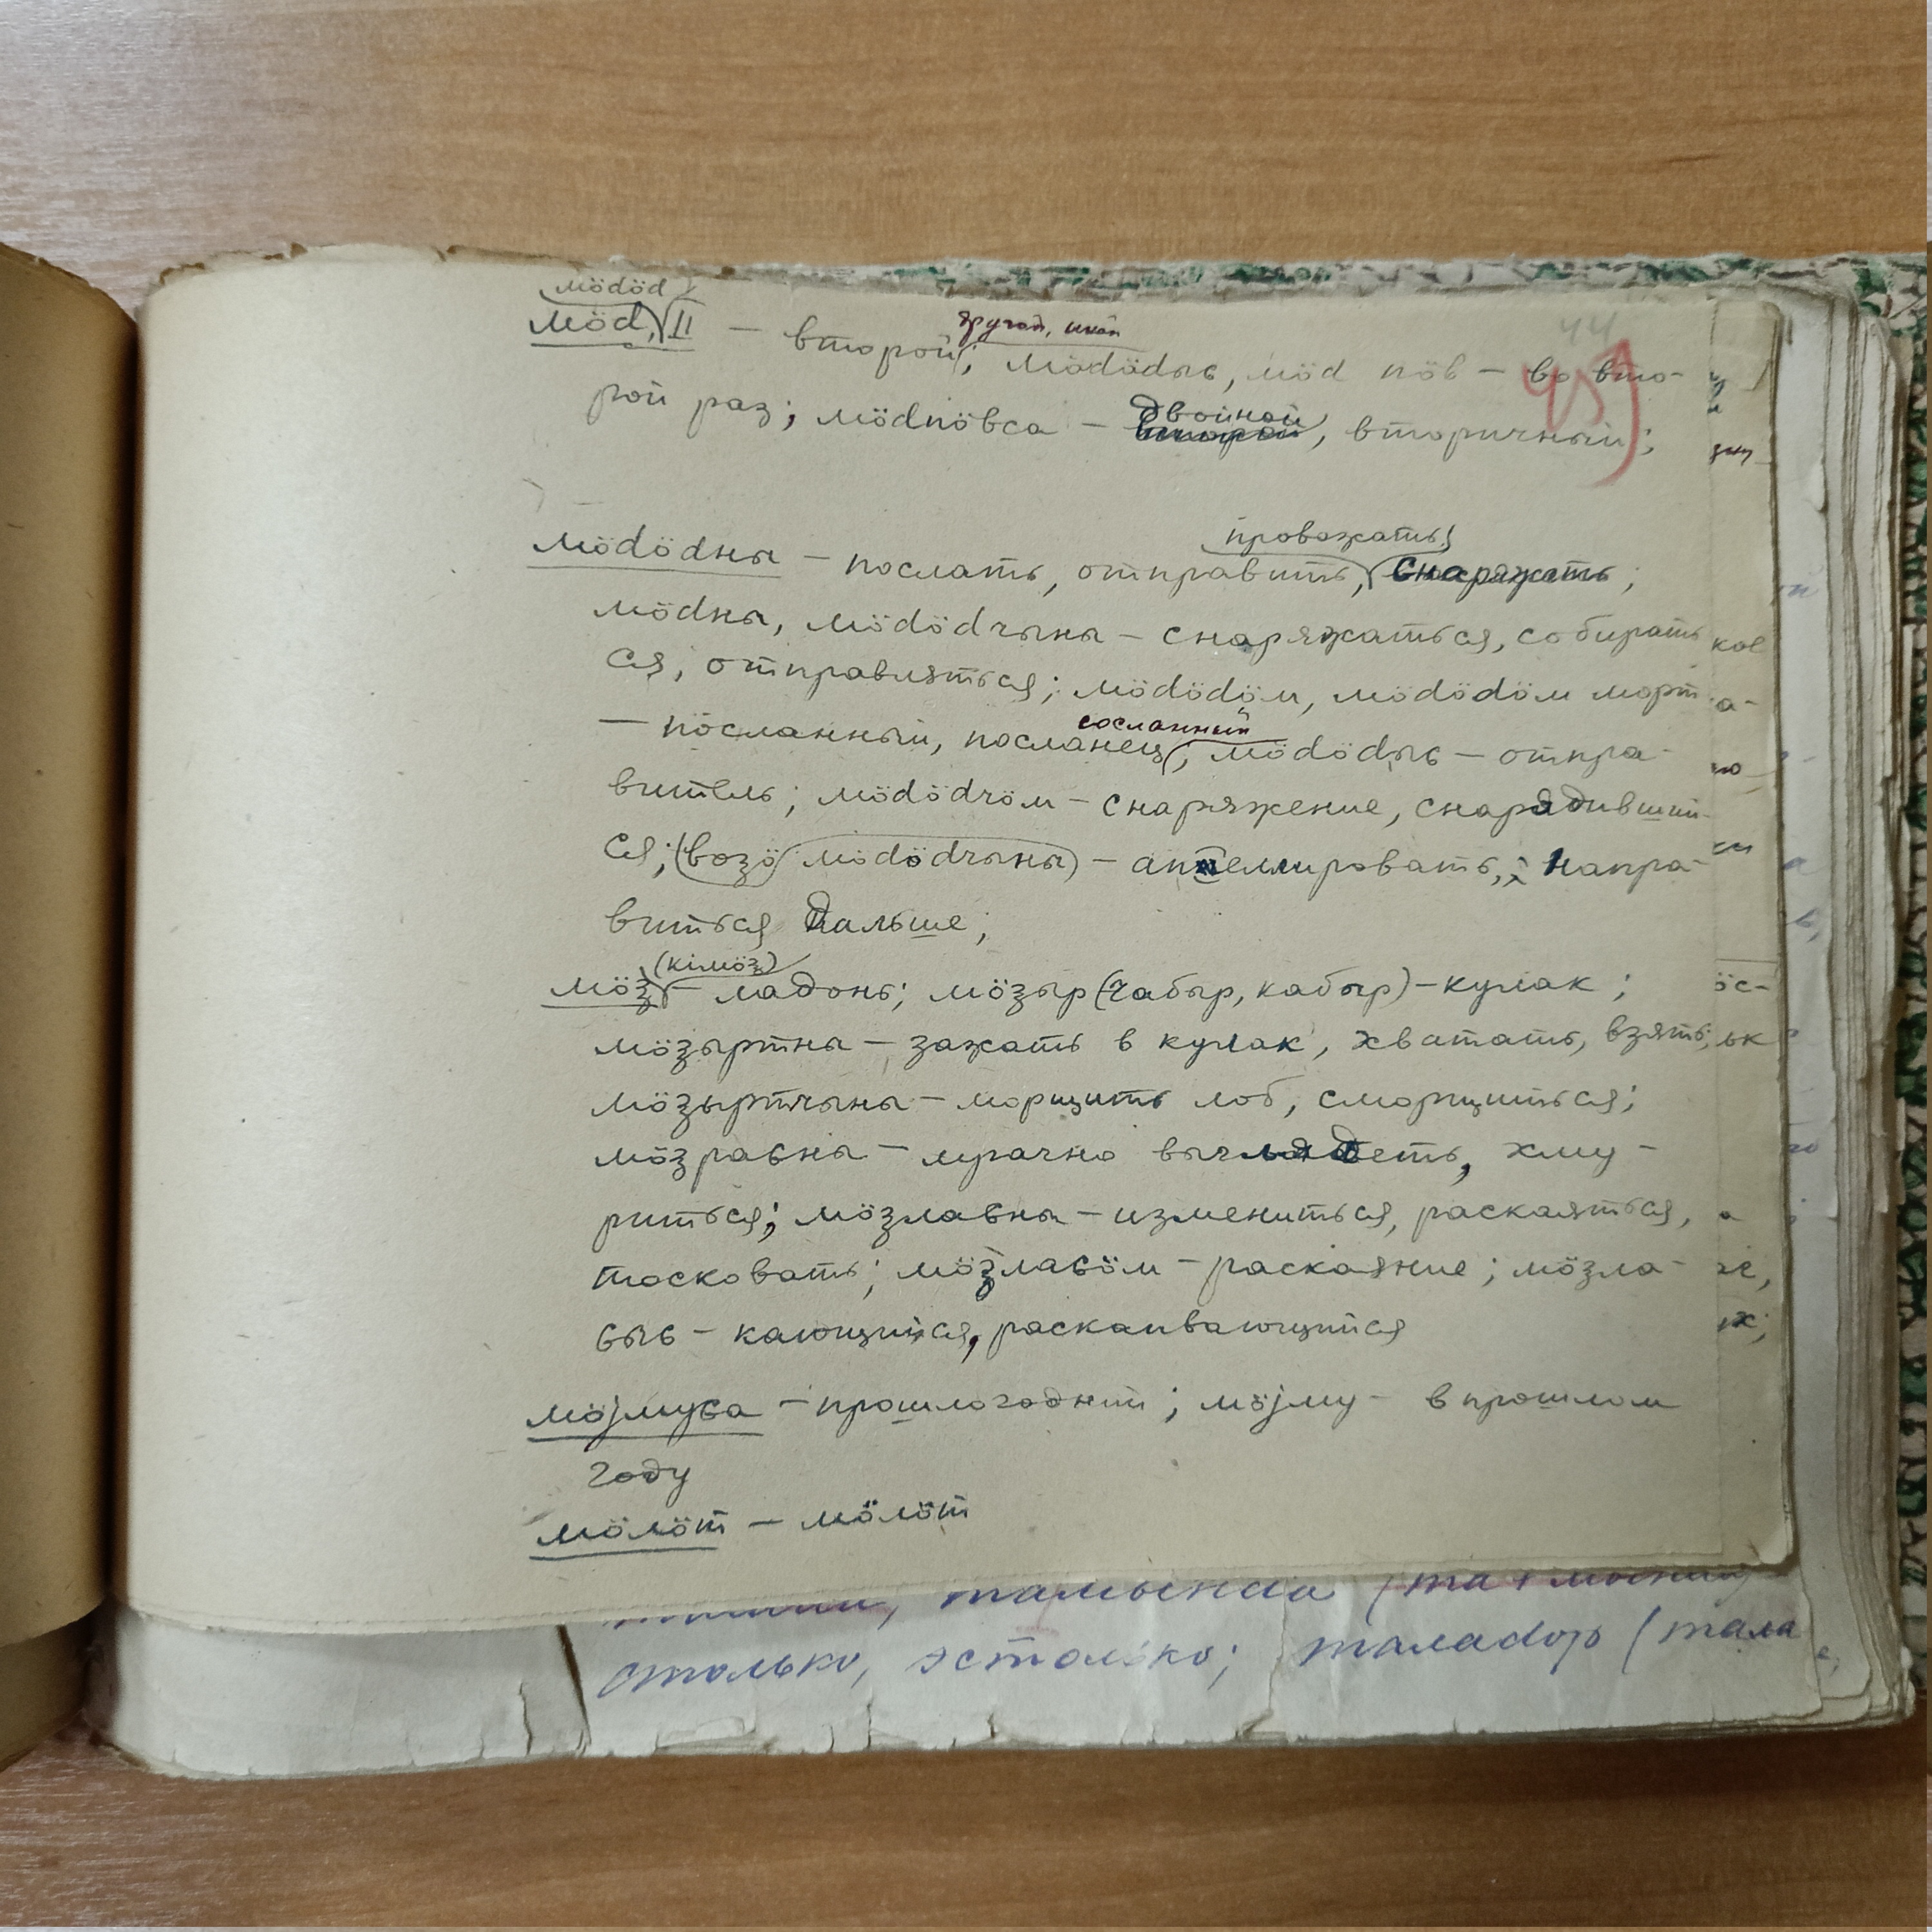 мöдöд
мöд, II — второй; другой, иной мöдöдыс, мöд пöв — во вто-
44
45
рой раз; мöдпöвса — двойной, вторичный;
провожать,
мöдöдны — послать, отправить, снаряжать;
мöдны, мöдöдчыны — снаряжаться, собирать
ся, отправляться; мöдöдöм, мöдöдöм морт
— посланный, посланец, сосланный; мöдöдыс — отпра-
витель; мöдöдчöм — снаряжение, снарядивший-
ся; (возö мöдöдчыны) — аппелировать, направ-
виться дальше;
(кiмöз)
мöз — ладонь; мöзыр (чабыр, кабыр) — кулак;
мöзыртны — зажать в кулак, хватать, взять;
мöзыртчыны — морщить лоб, сморщиться;
мöзравны — мрачно выглядеть, хму-
риться; мöзлаԍны — измениться, раскаяться,
тосковать; мöзлаԍöм — раскаяние; мöзла-
ԍыԍ — кающийся, раскаивающийся
мöjмуса — прошлогодний; мöjму — в прошлом
году
мöлöт — мöлöт
столько, эстолько;